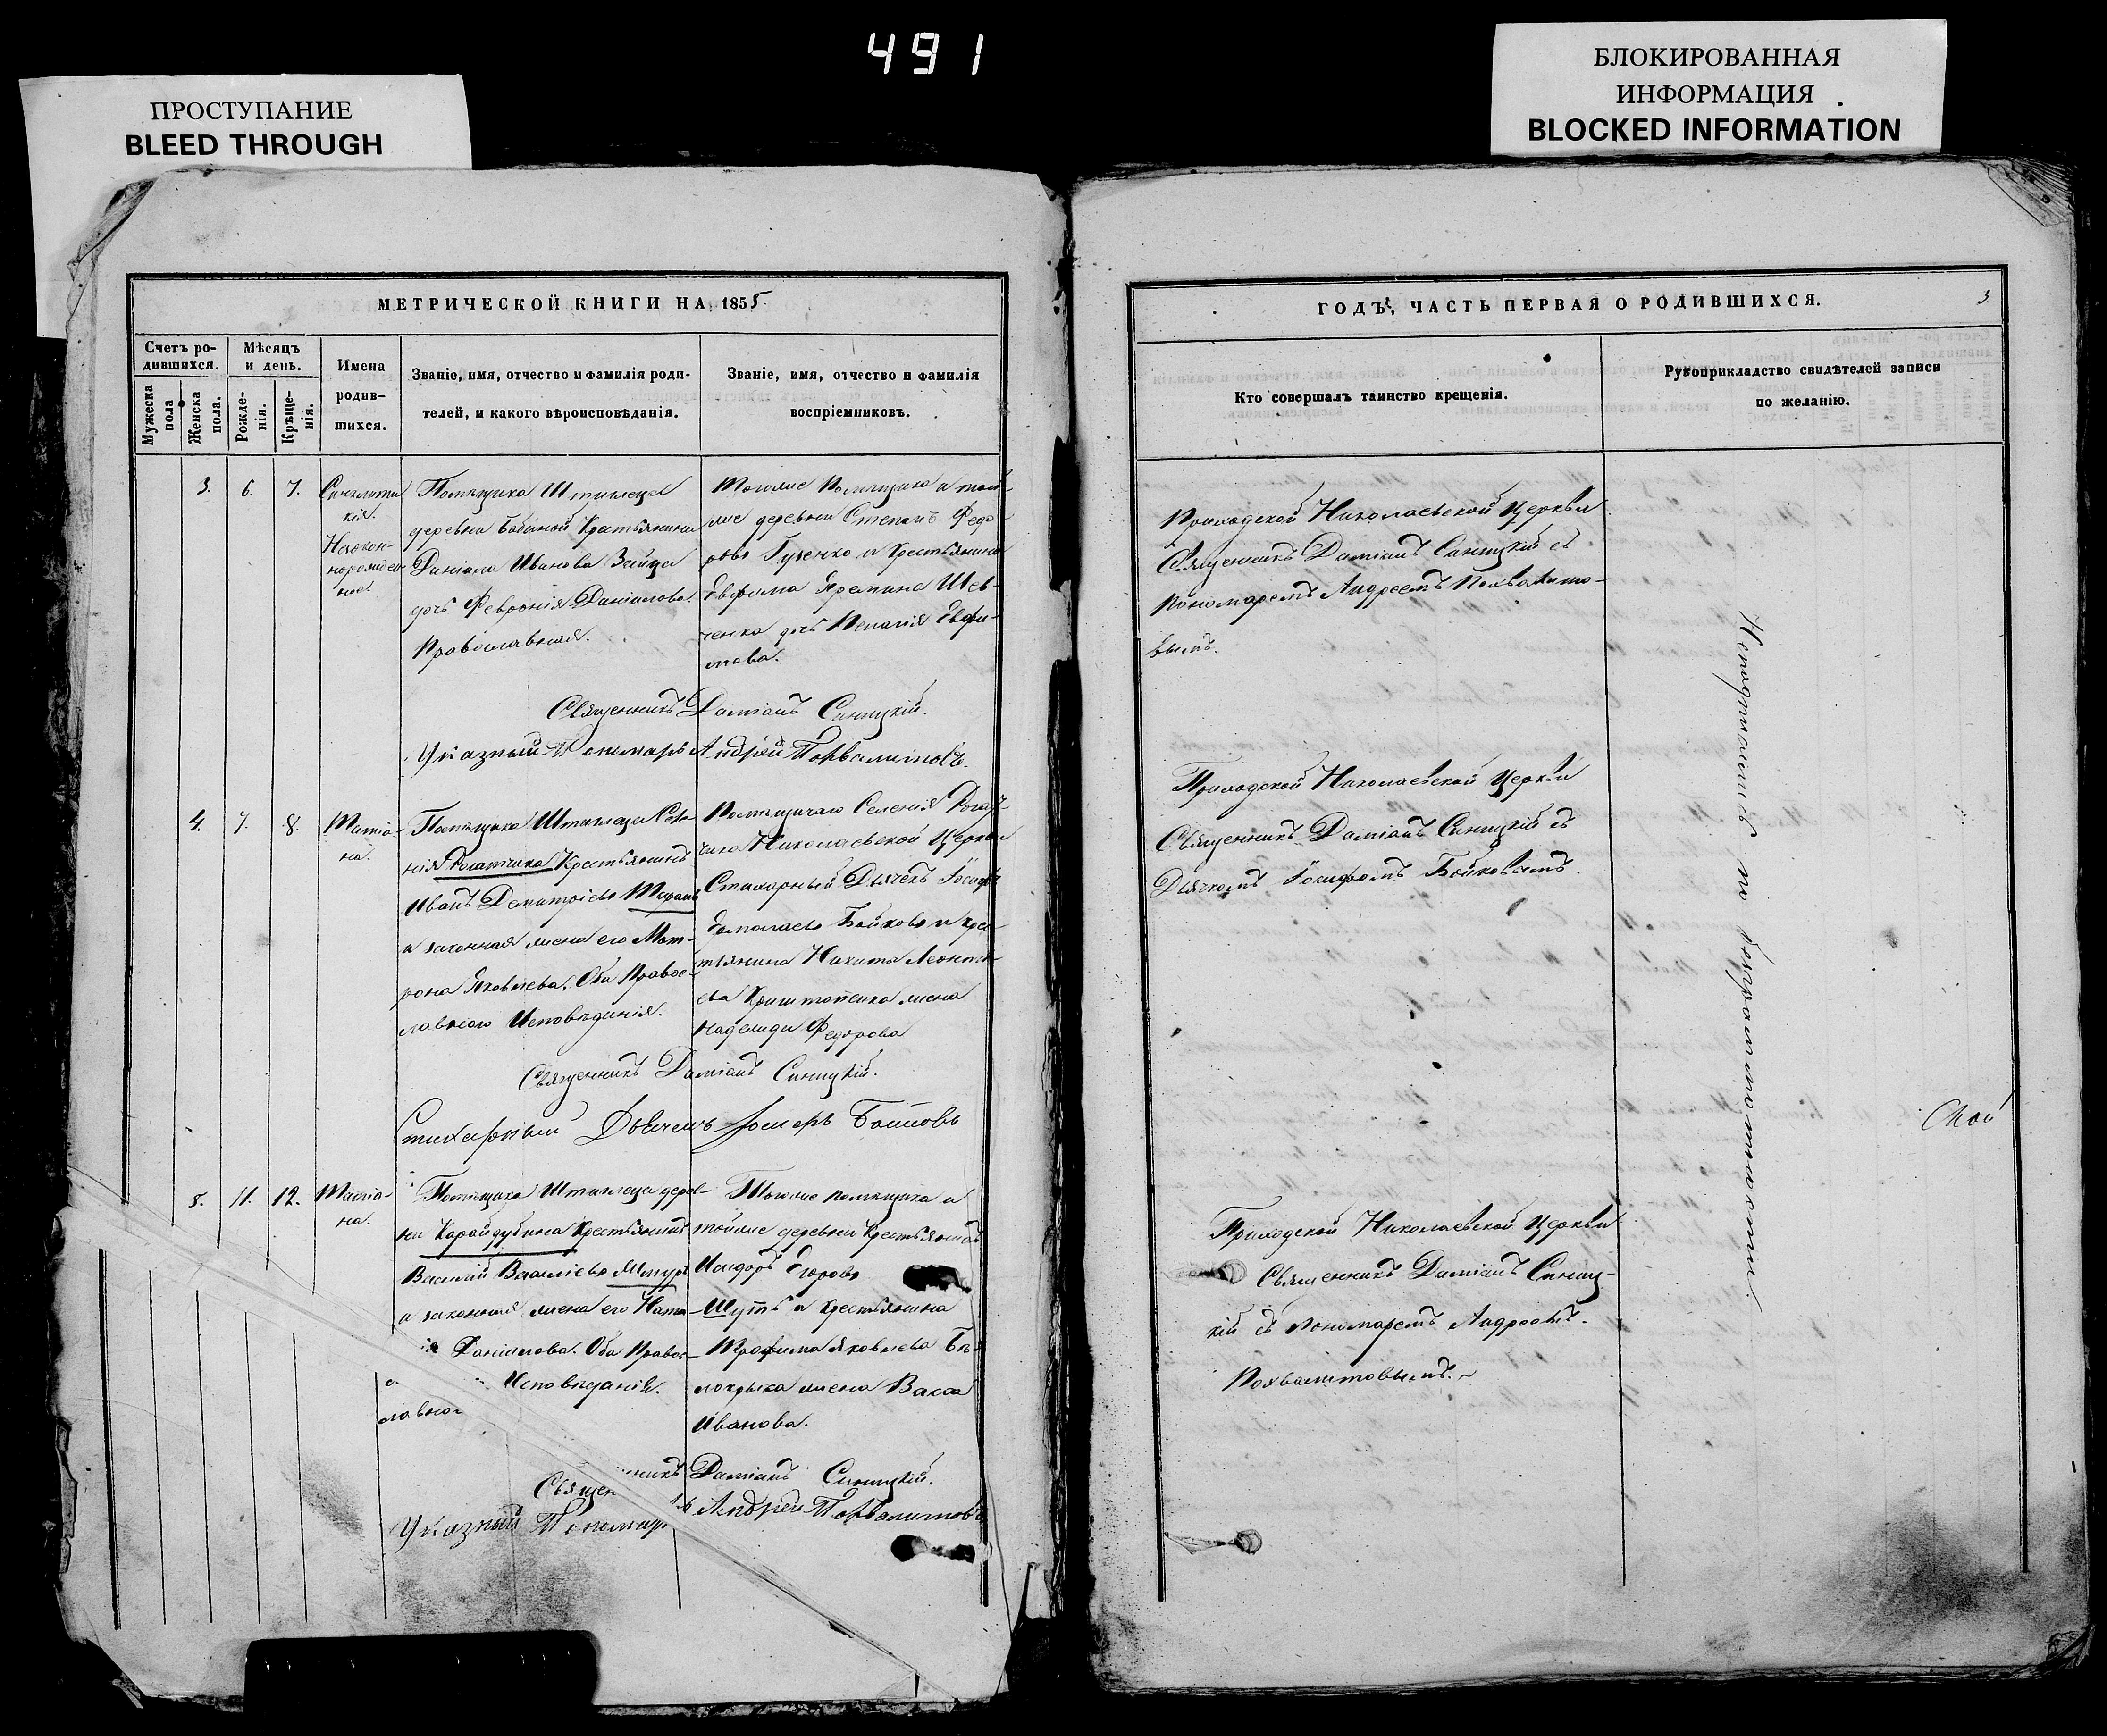 491
ПРОСТУПАНИЕ
BLEED THROUGH
БЛОКИРОВАННАЯ
ИНФОРМАЦИЯ
BLOCKED INFORMATION
МЕТРИЧЕСКОЙ КНИГИ НА 1855
Счетъ ро-
дившихся.
Мѣсяцъ
и день.
Мужеска
пола
Женска
пола.
Рожде-
нія.
Крѣще-
нія.
Имена
родив-
шихся.
Званіе, имя, отчество и фамилія роди-
телей, и какого вѣроисповѣданія.
Званіе, имя, отчество и фамилія
воспріемниковъ.
3. 6. 7.
Синклити
кія.
Незакон-
норожден
ная.
Помѣщика Штиглеца
деревни Бабиной Крестьянина
Даніила Иванова Зайца
дочь Февронія Даніилова.
Православная.
Тогоже Помѣщика и той
же деревни Степанъ Федо
ровъ Гученко и Крестьянина
Евфима Еремина Шев-
ченка дочь Пелагія Евфи-
мова.
Священникъ Даміанъ Синицкій.
Указный Пономарь Андрей Похвалитовъ.
4. 7. 8.
Татіа-
на.
Помѣщика Штиглеца Селе
нія Рогачика Крестьянинъ
Иванъ Димитріевъ
и законная жена его Мат-
рона Яковлева. Оба Право-
славнаго Исповѣданія.
Помѣщичаго Селенія Рога-
чика Николаевской Церкви
Стихарный Дьячекъ Іосифъ
Ермолаевъ Бойковъ и Крес-
тьянина Никита Леонть-
ева жена
Надежда Федорова
Священникъ Даміанъ Синицкій.
Стихарный Дьячекъ Іосифъ Бойковъ
5. 11. 12.
Татіа-
на.
Помѣщика Штиглеца дерев-
ни Карайдубина Крестьянинъ
Василій Василіевъ
и законная жена его Ната
Даніилова. Оба Правос-
Исповѣданія.
славнаг
Тогоже помѣщика и
тойже деревни Крестьянинъ
Исидоръ Егоровъ
Шутъ и Крестьянина
Трофима Яковлева Бѣ-
локрыса жена Васса
Иванова.
Священникъ Даміанъ Синицкій.
Указный Пономарь Андрей Похвалитовъ
ГОДЪ, ЧАСТЬ ПЕРВАЯ О РОДИВШИХСЯ.
3.
Кто совершалъ таинство крещенія.
Рукоприкладство свидѣтелей записи
по желанію.
Приходской Николаевской Церкви
Священникъ Даміанъ Синицкій съ
Пономаремъ Андреемъ Похвалито-
вымъ.
Приходской Николаевской Церкви
Священникъ Даміанъ Синицкій съ
Дьячкомъ Іосифомъ Бойковымъ.
Приходской Николаевской Церкви
Священникъ Даміанъ Синиц-
кій съ Пономаремъ Андреемъ
Похвалитовымъ.
Неподписались по безграмотности.